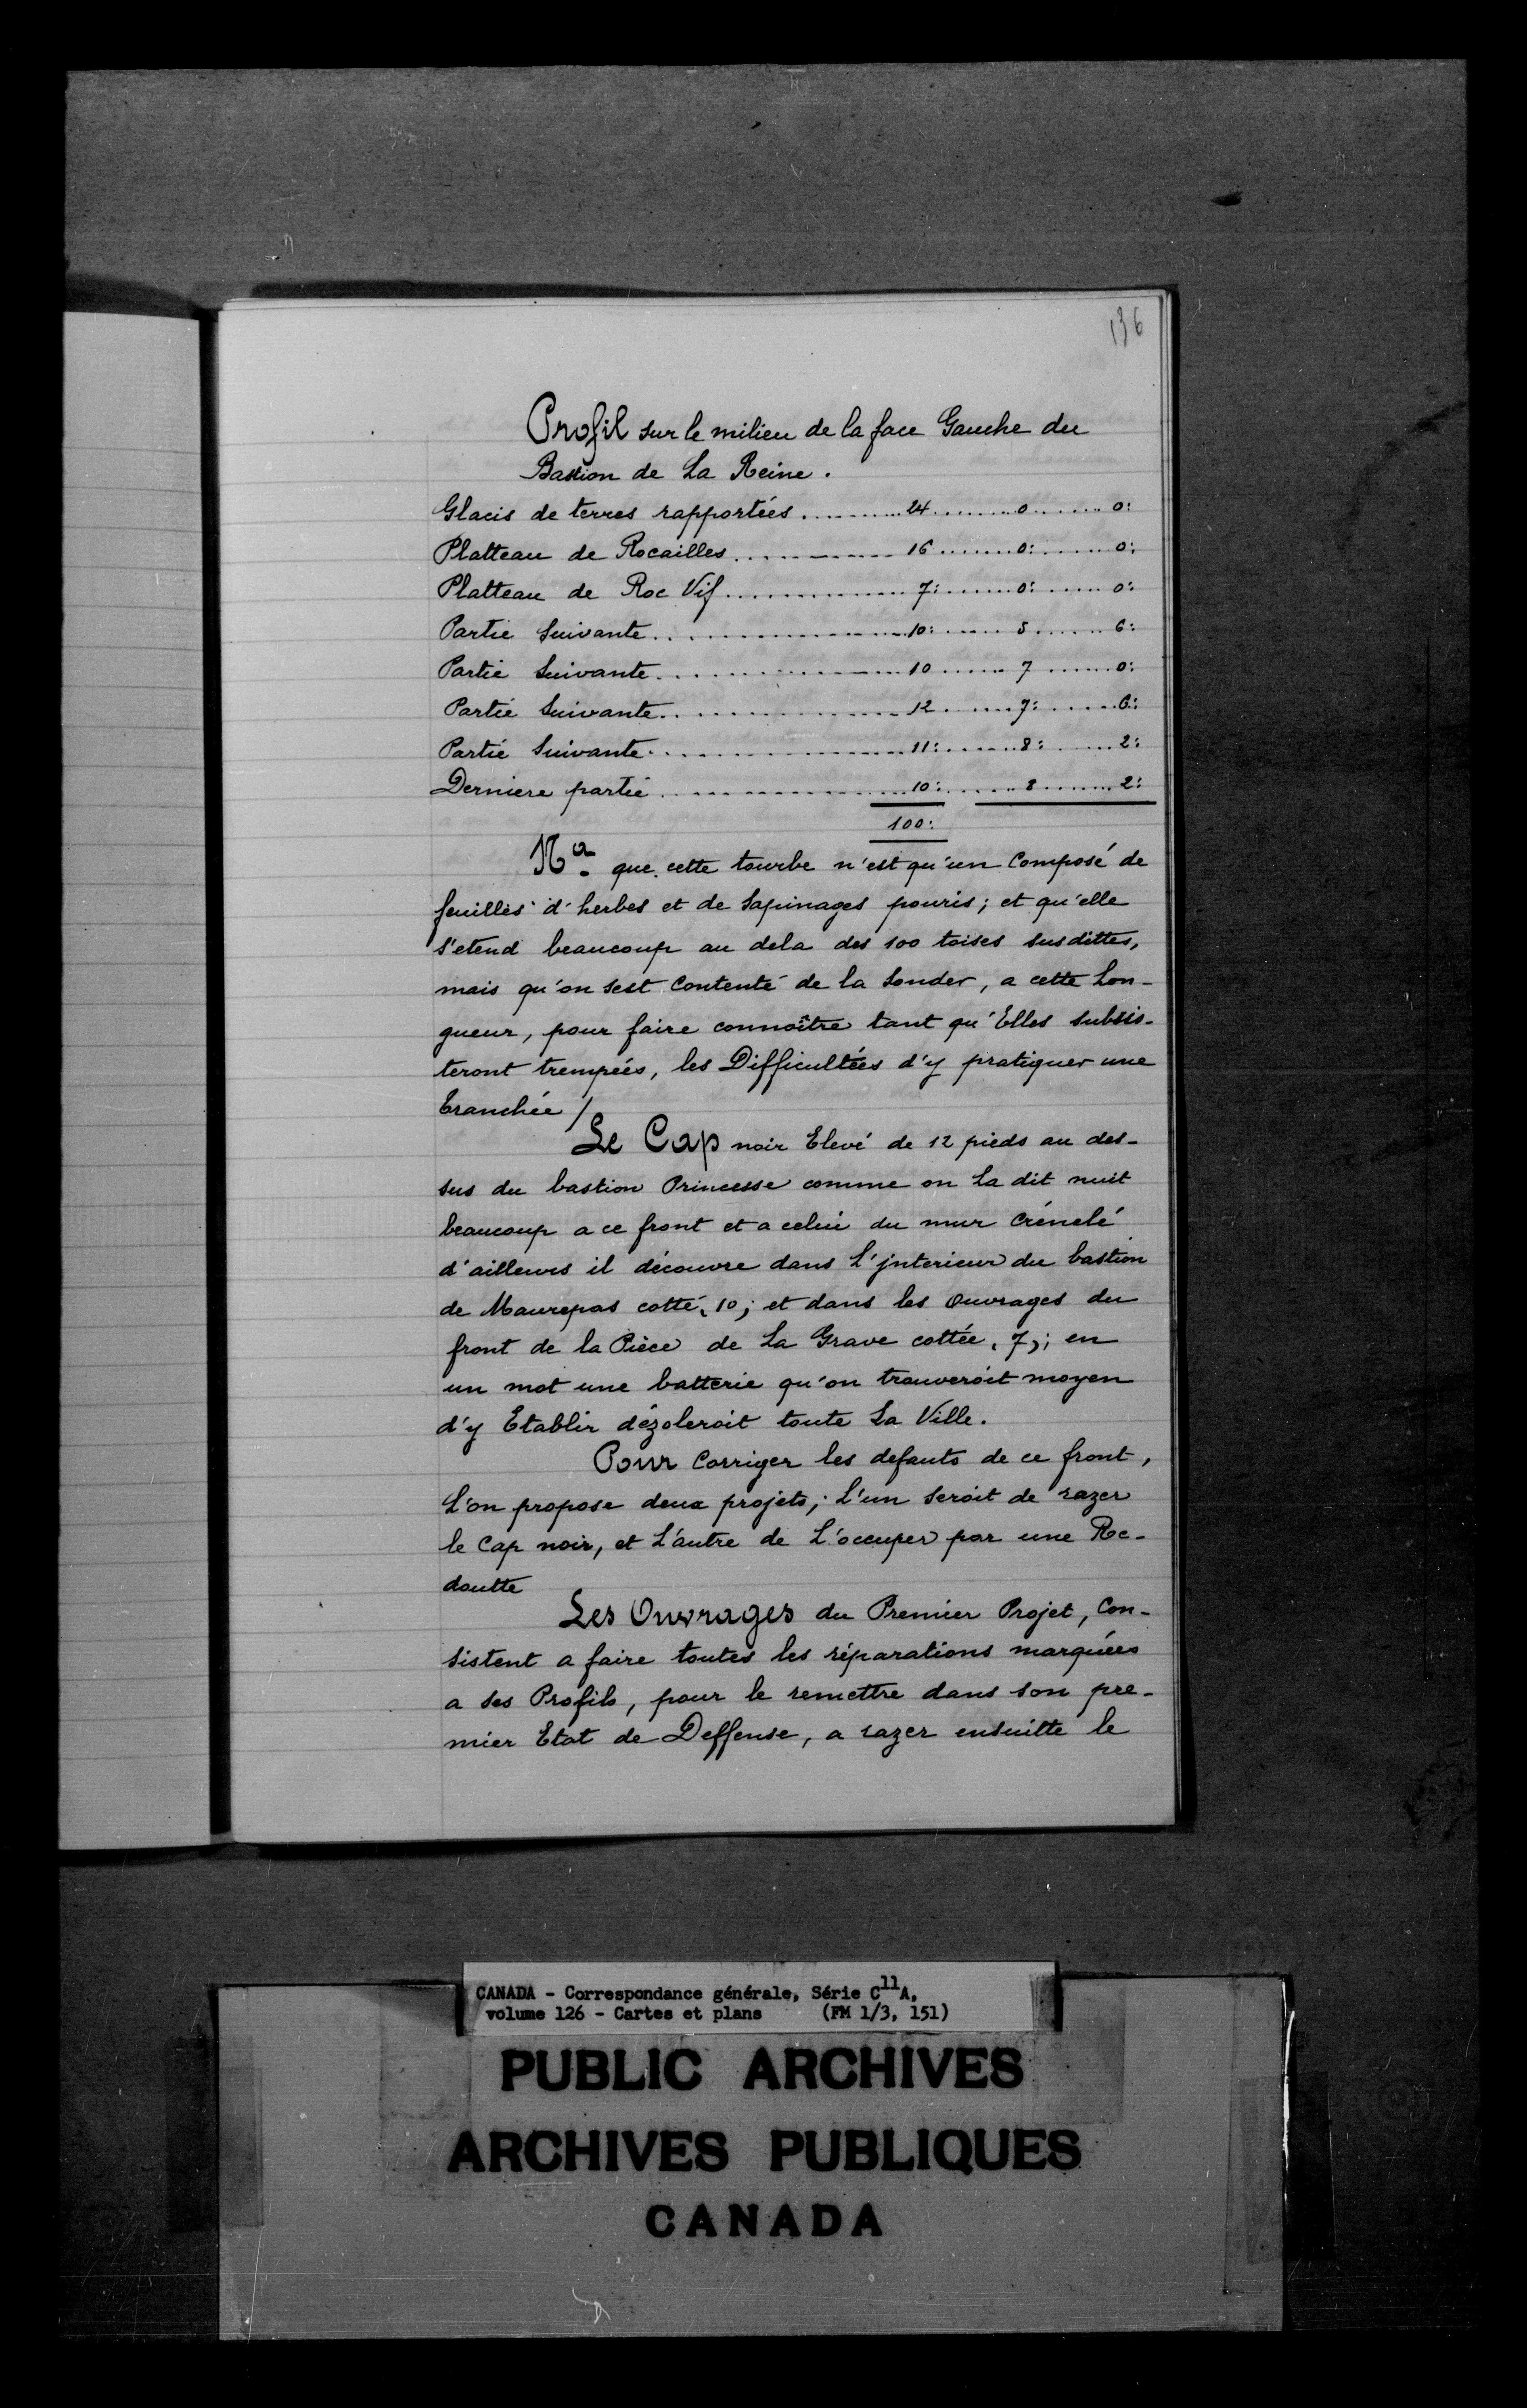 136
Profil sur le milieu de la face Gauche du
Bastion de La Reine.
Glacis de terres rapportées..........24.........0.......0:
Platteau de Rocailles..............16........0:.......0:
Platteau de Roc Vif................7:........0:......0:
Partie Suivante....................10:......5.......6:
Partie Suivante....................10.......7.......0:
Partie Suivante....................12......7:......6:
Partié Suivante....................11:.......8:.......2:
Derniere partié....................10:......8........2:
100:
Na. que cette tourbe n'est qu'un Composé de
feuilles d'herbes et de Sapinages pouris; et qu'elle
s'etend beaucoup au dela des 100 toises susdittes,
mais qu'on sest Contenté de la Sonder, a cette Lon-
gueur, pour faire connoître tant qu'Elles subsis-
teront trempées, les Difficultées d'y pratiquer une
tranchée /
Le Cap noir Elevé de 12 pieds au des-
sus du bastion Princesse comme on La dit nuit
beaucoup a ce front et a celui du mur Crénelé
d'ailleurs il découvre dans L'jnterieur du bastion
de Maurepas cotté, 10; et dans les Ouvrages du
front de la Pièce de La Grave cottée, 7,; en
un mot une batterie qu'on trouveroit moyen
d'y Etablir dézoleroit toute La Ville.
Pour Corriger les defauts de ce front,
L'on propose deux projets; L'un Seroit de razer
le Cap noir, et L'autre de L'occuper par une Re-
doutte
Les Ouvrages du Premier Projet, Con-
sistent a faire toutes les réparations marquées
a ses Profils, pour le remettre dans son pre-
mier Etat de Deffense, a razer ensuitte le
CANADA - Correspondance générale, Série C11A,
volume 126 - Cartes et plans (FM 1/3, 151)
PUBLIC ARCHIVES
ARCHIVES PUBLIQUES
CANADA